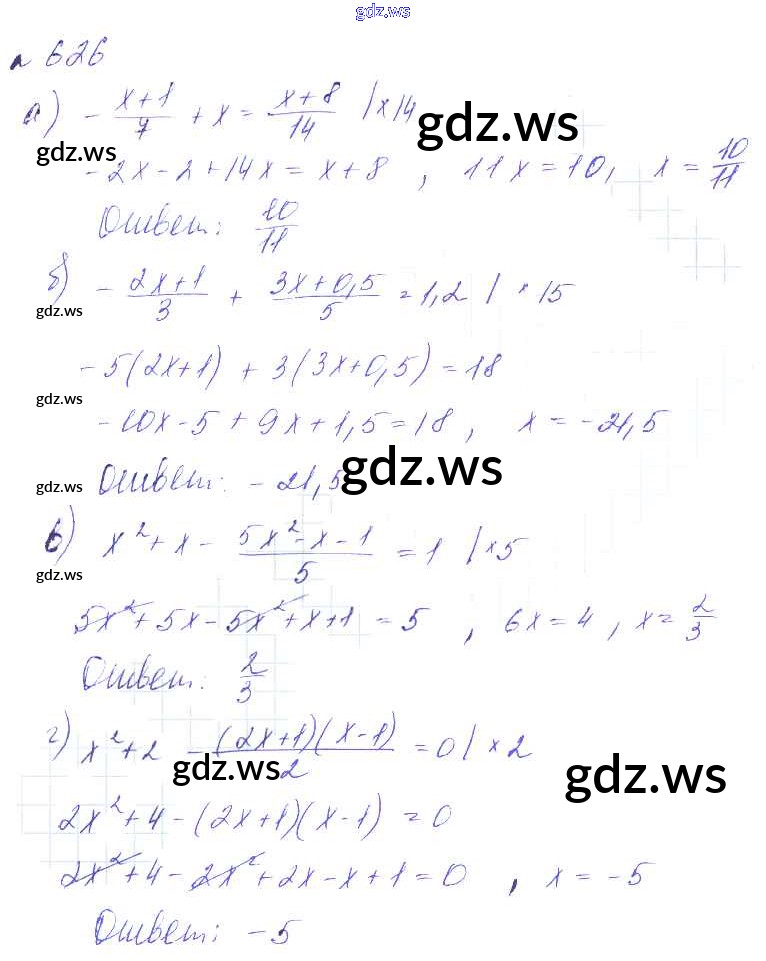 gdz.ws
№ 626
а) - \frac{x+1}{7} + x = \frac{x+8}{14} | x14
gdz.ws
gdz.ws
-2x-2+14x = x+8 , 11x=10, x = \frac{10}{11}
Ответ: \frac{10}{11}
б) - \frac{2x+1}{3} + \frac{3x+0,5}{5} = 1,2 | · 15
gdz.ws
-5(2x+1) + 3(3x+0,5) = 18
gdz.ws
-10x-5+9x+1,5=18 , x = -21,5
gdz.ws
gdz.ws
Ответ: -21,5
в) x²+x - \frac{5x²-x-1}{5} = 1 | x5
gdz.ws
5x²+5x-5x²+x+1 = 5 , 6x=4 , x=\frac{2}{3}
Ответ: \frac{2}{3}
г) x²+2 - \frac{(2x+1)(x-1)}{2} = 0 | x2
gdz.ws
gdz.ws
2x²+4-(2x+1)(x-1) = 0
2x²+4-2x²+2x-x+1=0 , x = -5
Ответ: -5